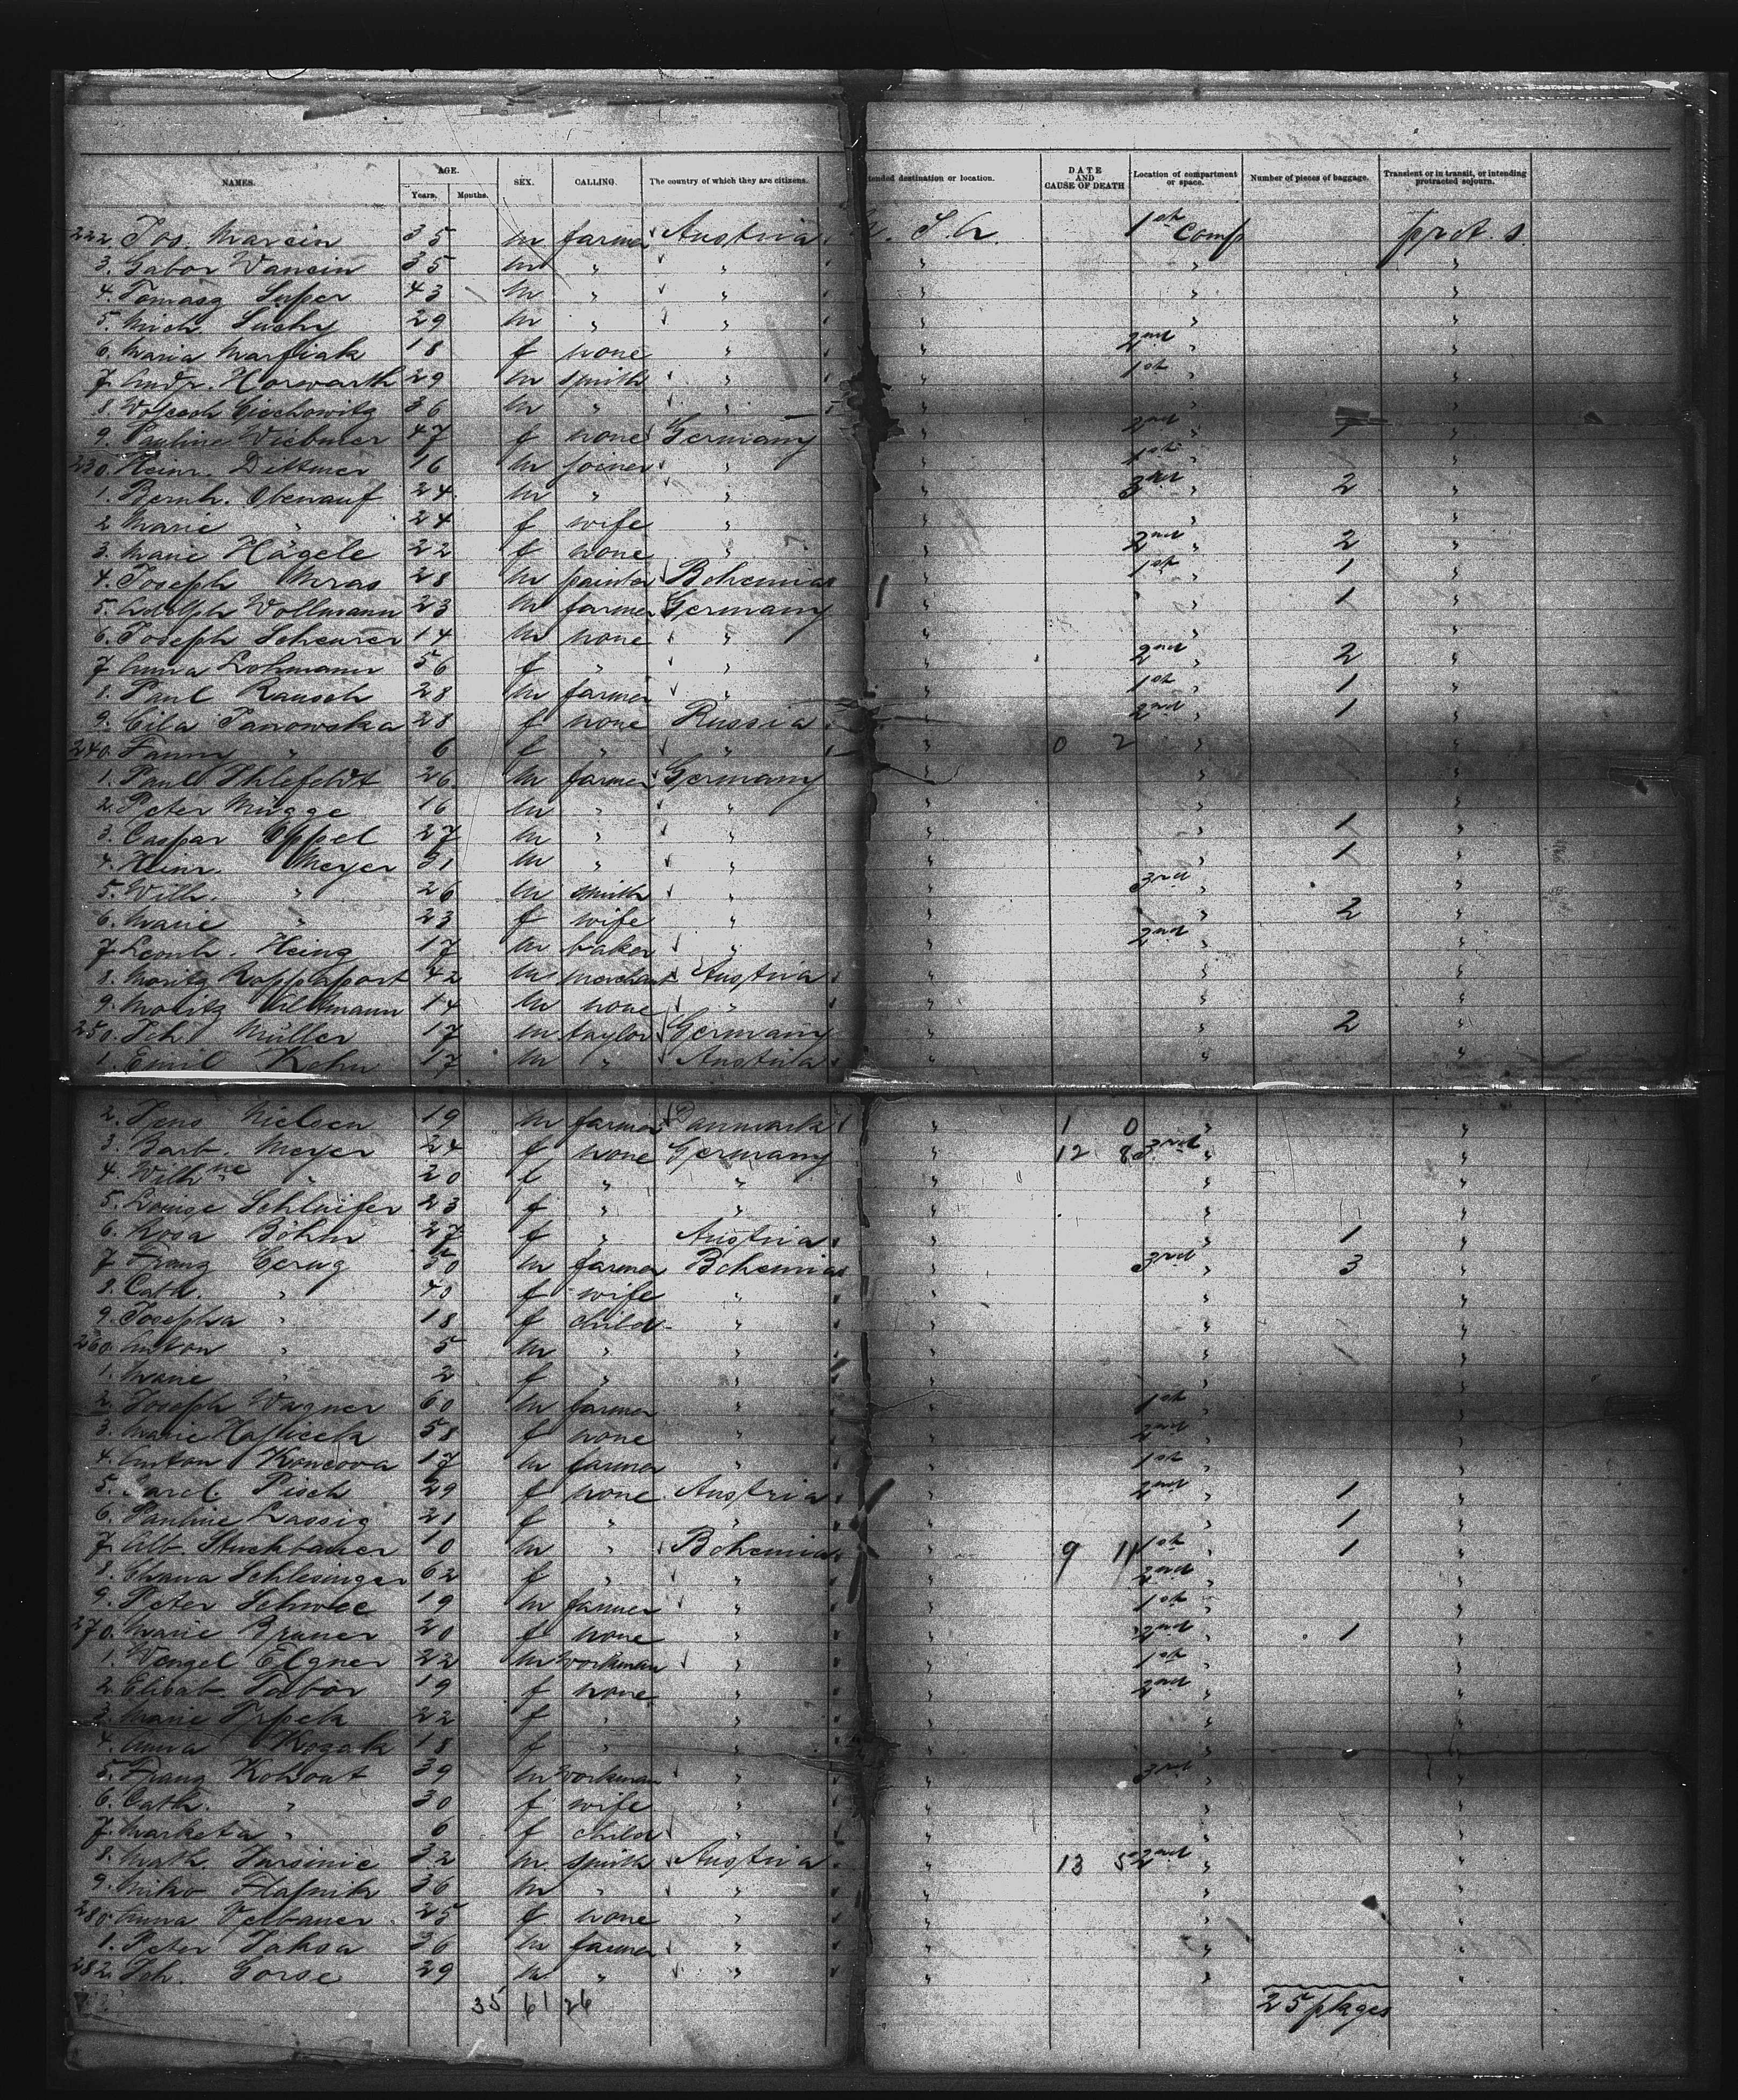 NAMES. AGE. Years. Months. SEX. CALLING. The country of which they are citizens. tended destination or location. DATE AND CAUSE OF DEATH Location of compartment or space. Number of pieces of baggage. Transient or in transit, or intending protracted sojourn.
222. Jos. Marcin 35 m farmer Austria U. S. A. 1st Comp prot. s.
3. Gabor Wancin 35 m " " " " "
4. Tomasz Super 43 m " " " " "
5. Mich. Suchy 29 m " " " " "
6. Maria 18 f none " " 2nd " "
7. Andr. Horwarth 29 m smith " " 1st " "
8. Ciechowitz 36 m " " " " "
9. Pauline Widmer 47 f none Germany " 2nd " "
230. Heinr. Dittmer 16 m joiner " " 1st " "
1. Bernh. Obenauf 24 m " " " 3rd " 2 "
2. Marie " 24 f wife " " " "
3. Marie Hägele 22 f none " " 2nd " 2 "
4. Joseph Mras 28 m painter Bohemia " 1st " 1 "
5. Adolph Vollmann 23 m farmer Germany " " 1 "
6. Joseph Scheurer 14 m none " " " "
7. Anna Lohmann 56 f " " " 2nd " 2 "
8. Paul Rausch 28 m farmer " " 1st " 1 "
9. Cila Janowska 28 f none Russia " 2nd " 1 "
240. Fanny " 6 f " " " 0 2 " "
1. Paul Ihlefeldt 26 m farmer Germany " " "
2. Peter Mügge 16 m " " " " "
3. Caspar Oppel 27 m " " " " 1 "
4. Heinr. Meyer 31 m " " " " 1 "
5. Wilh. " 26 m smith " " 3rd " "
6. Marie " 23 f wife " " " 2 "
7. Leonh. Heinz 17 m baker " " 2nd " "
8. Moritz Rappaport 42 m merchant Austria " " "
9. Moritz Altmann 14 m none " " " "
250. Joh. Müller 17 m taylor Germany " " 2 "
1. Emil Kohn 17 m " Austria " " "
2. Jens Nielsen 19 m farmer Danmark " 1 0 " "
3. Barb. Meyer 24 f none Germany " 12 8 3rd " "
4. Wilhne " 20 f " " " " "
5. Louise Schleifer 23 f " " " " "
6. Rosa Böhm 27 f " Austria " " 1 "
7. Franz Cerny 50 m farmer Bohemia " 3rd " 3 "
8. Cath. " 40 f wife " " " "
9. Josepha " 18 f child " " " "
260. Anton " 5 m " " " " "
1. Marie " 2 f " " " " "
2. Joseph Wagner 60 m farmer " " 1st " "
3. Marie Haflicek 58 f none " " 2nd " "
4. Anton Koncova 17 m farmer " " 1st " "
5. Carol. Pisch 29 f none Austria " 2nd " 1 "
6. Pauline Lassig 21 f " " " " 1 "
7. Alb. Stuchbauer 10 m " Bohemia " 9 11 1st " 1 "
8. Chana Schlesinger 62 f " " " 2nd " "
9. Peter 19 m farmer " " 1st " "
270. Marie Bruner 20 f none " " 2nd " 1 "
1. Wenzel Elgner 22 m workman " " 1st " "
2. Elisab. Tabor 19 f none " " 2nd " "
3. Marie 22 f " " " " "
4. Anna Kozak 18 f " " " " "
5. Franz Kohout 39 m workman " " 3rd " "
6. Cath. " 30 f wife " " " "
7. Marketa " 0 f child " " " "
8. Math. 32 m smith Austria " 13 5 2nd " "
9. Miko 36 m " " " " "
280. Anna Velbauer 25 f none " " " "
1. Peter Jaksa 36 m farmer " " " "
282. Joh. Gorse 29 m " " " " "
35 61 26 25 pkages